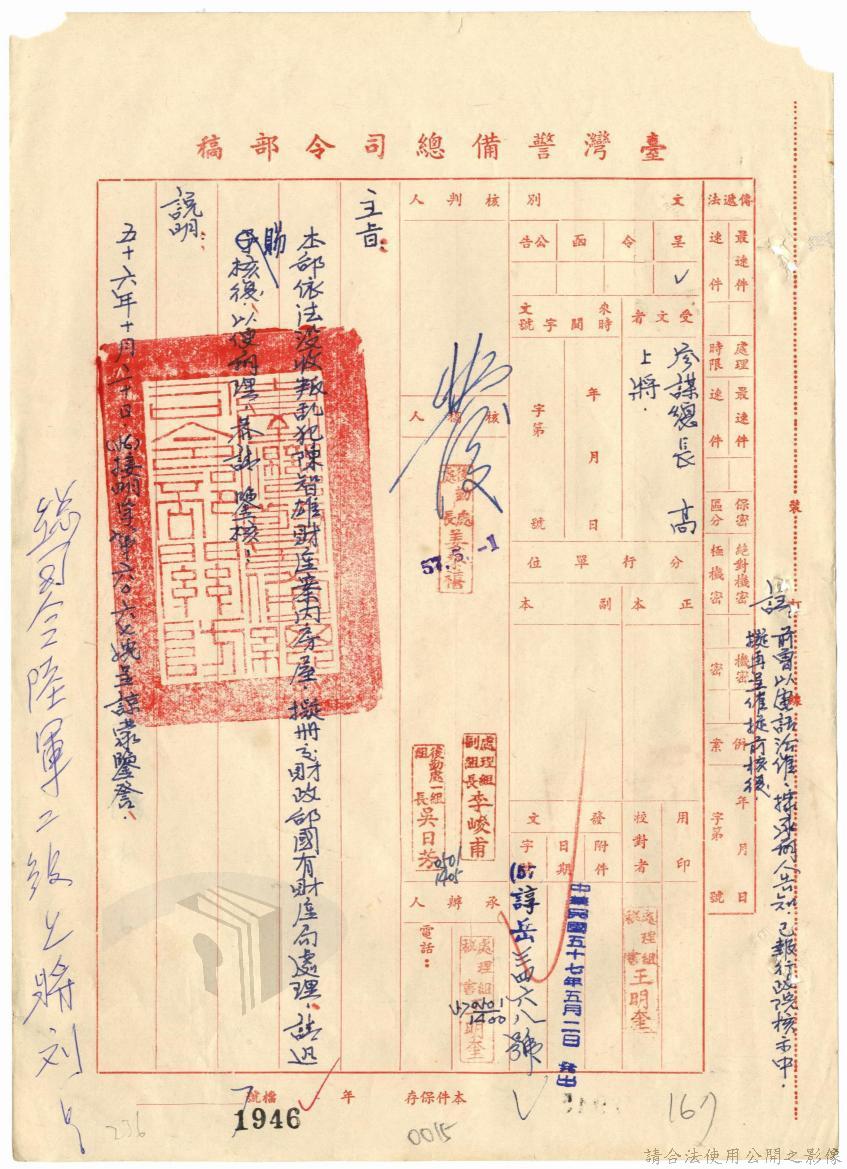 臺灣警備總司令部稿
傳遞法
最速件
速件
處理時限
最速件
速件
保密區分
絕對機密
極機密
機密
密
併案
年 月 日
字第 號
文別
呈
令
函
公告
✓
受文者
參謀總長 高
上將.
來文
時間
字號
年 月 日
字第 號
分行單位
正本
副本
用印
校對者
處理組秘書王明奎
發文
附件
日期
中華民國五十七年五月二日
字號
(57)諄岳三四六八號
核判人
核稿人
57.5.-1
處理組副組長李峻甫
後勤處一組組長吳日芳
0501
1405
承辦人
電話:
0501
1400
裝
訂
線
註:前曾以電話洽催,據承辦人告知已報行政院核示中.
擬再呈催提前核復
主旨:
本部依法沒收叛亂犯陳智雄財產案內房屋,擬冊交財政部國有財產局處理,請迅
賜核復,以便辦理,恭請 鑒核!
說明:
五十六年十月二十日,
總司令陸軍二級上將劉
本件保存 年 檔號
1946
0015
167
236
請合法使用公開之影像